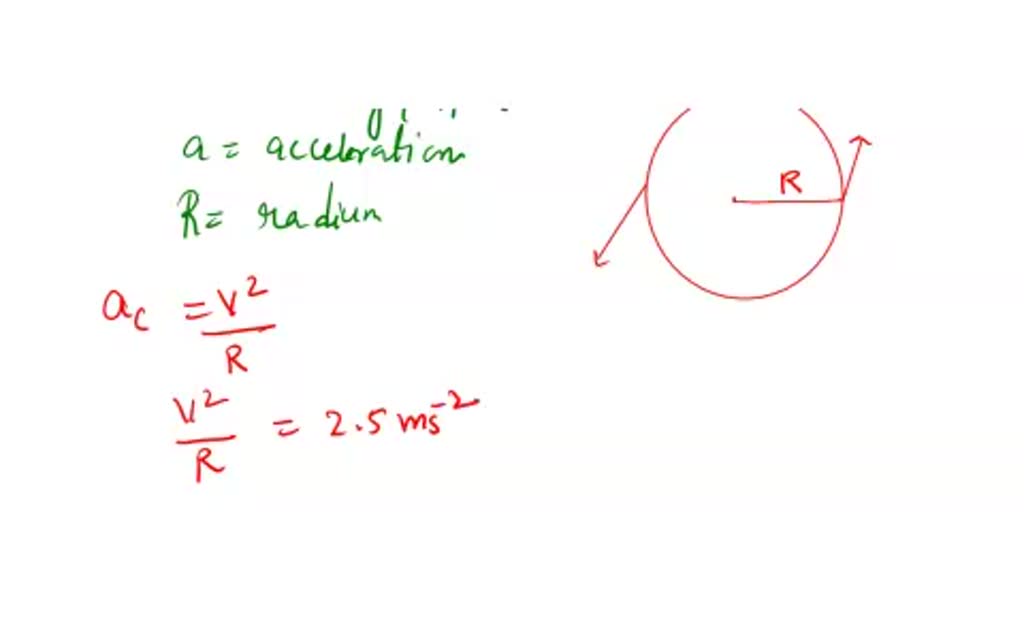 a = acceleration
R = radium
R
a_c = V²/R
V²/R = 2.5 ms⁻²